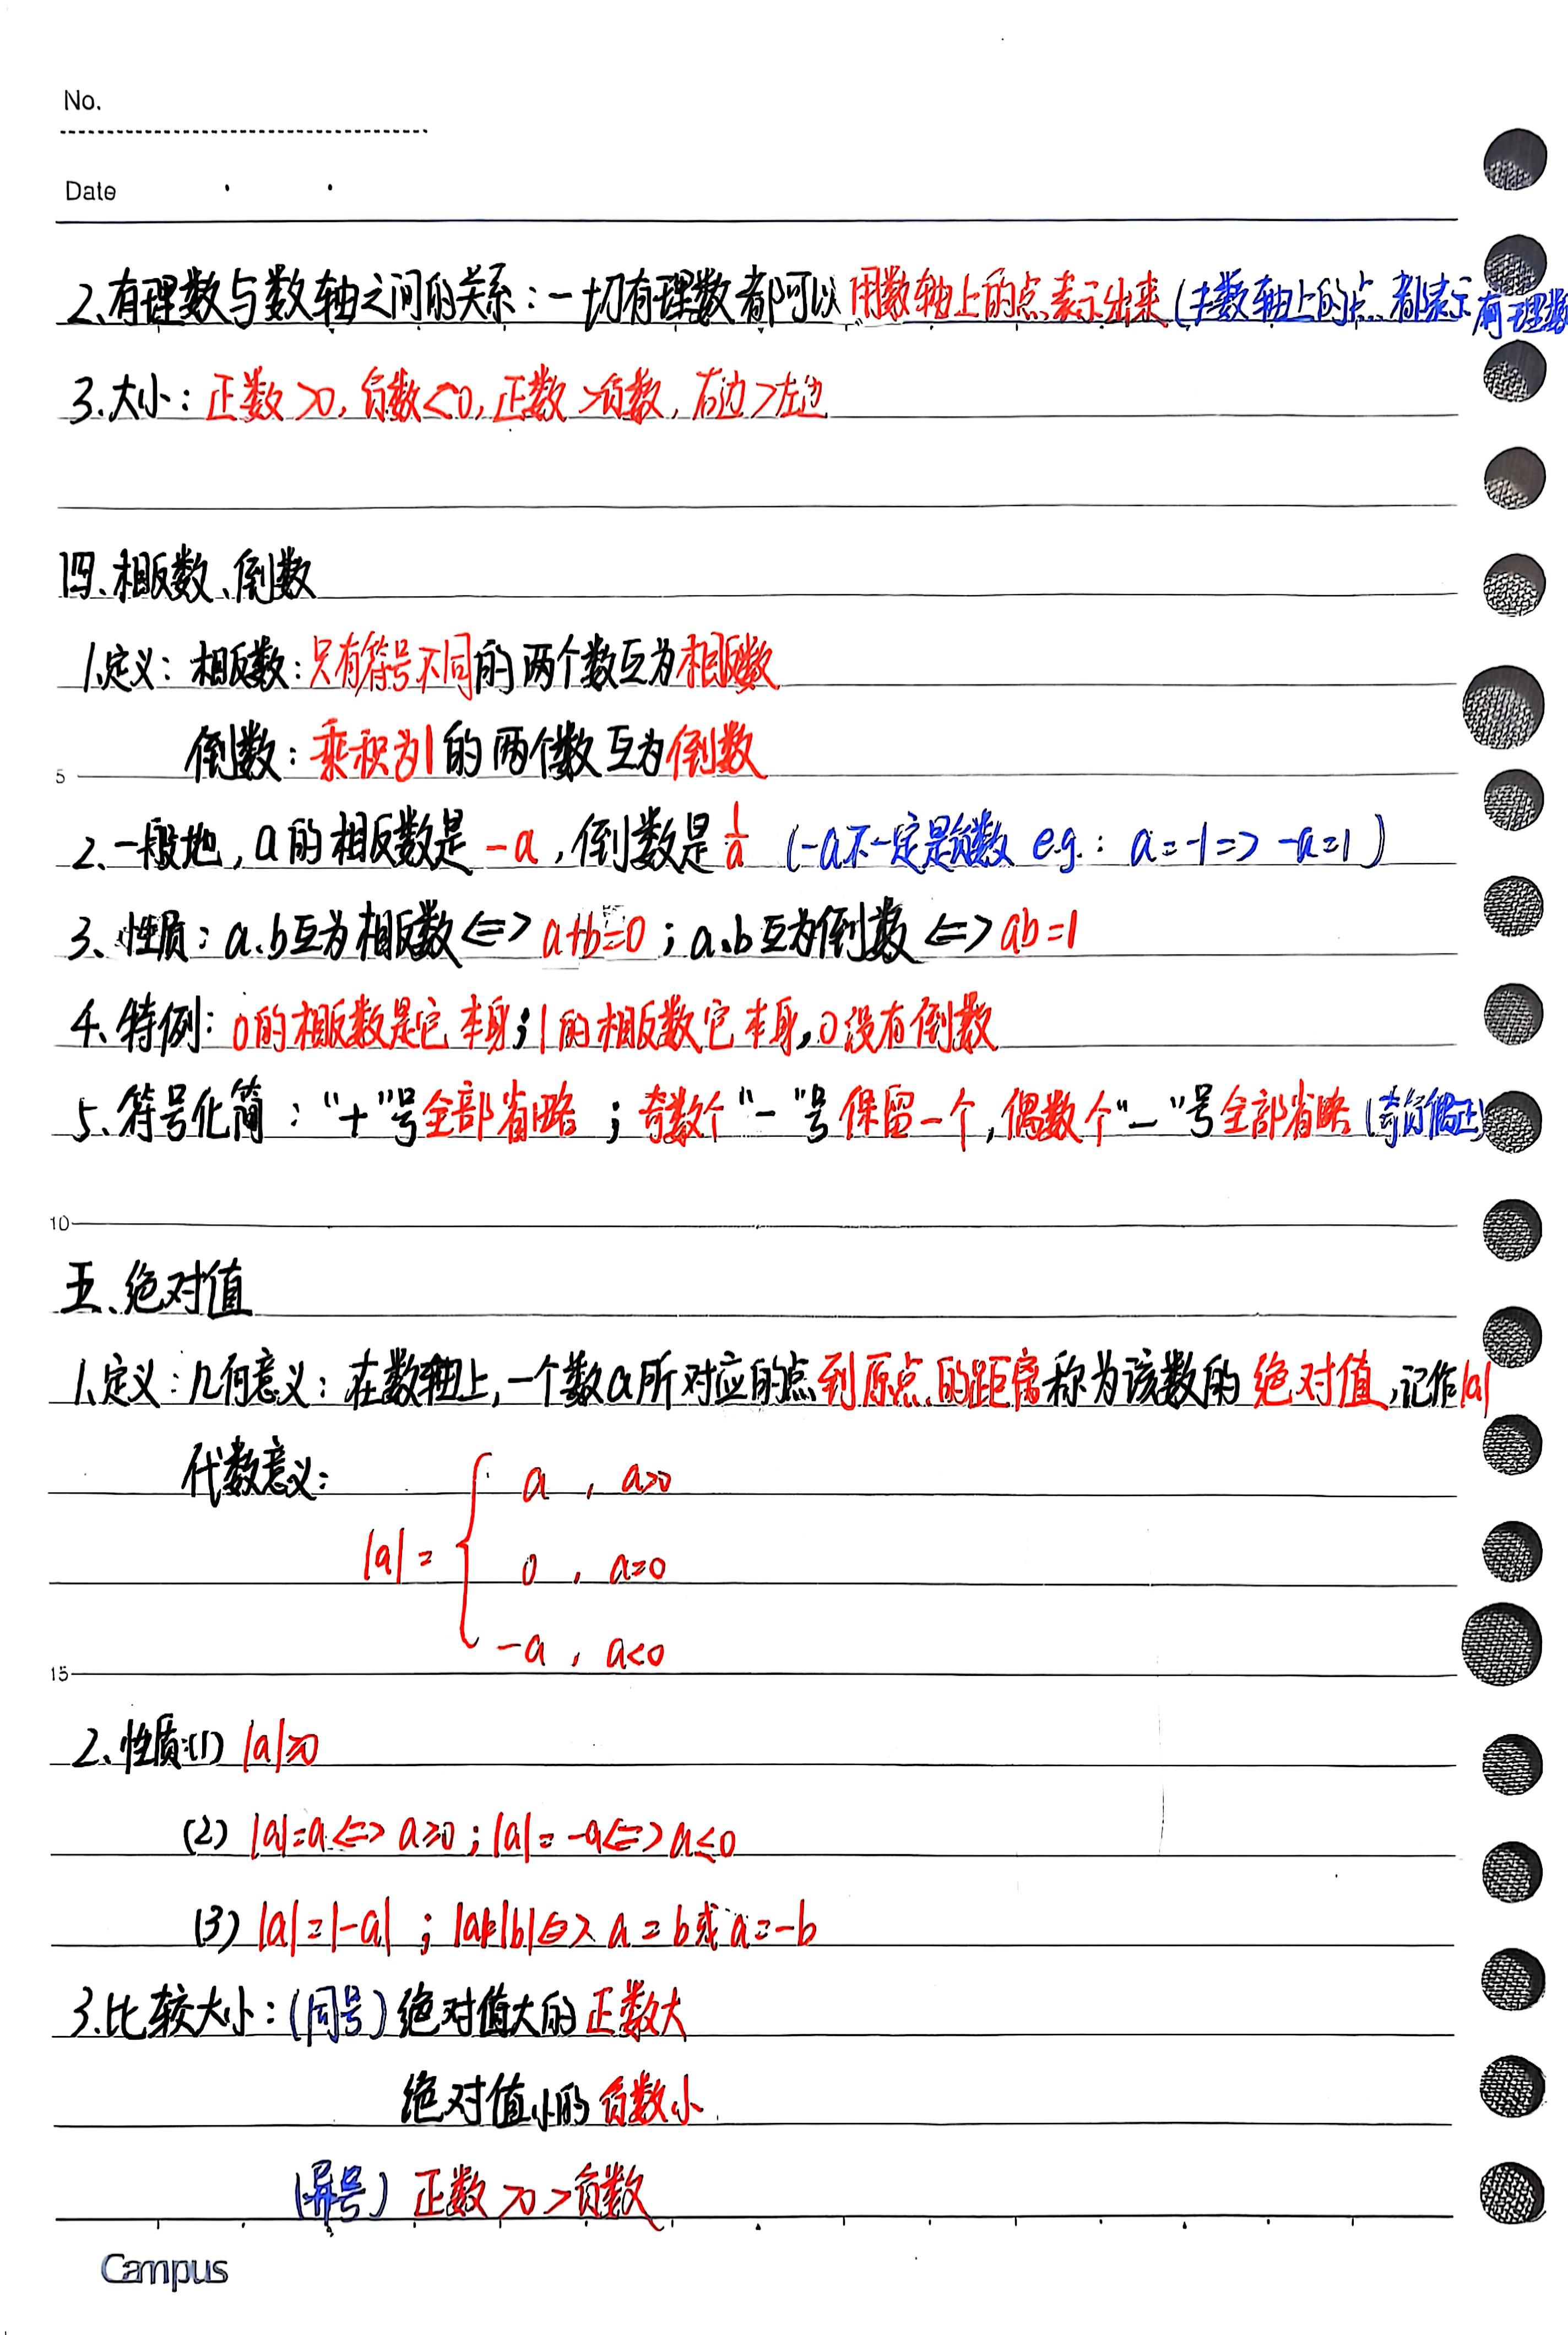 No.
Date
2.有理数与数轴之间的关系：一切有理数都可以用数轴上的点表示出来(数轴上的点都表示有理数
3.大小：正数>0,负数<0,正数>负数,右边>左边
四、相反数、倒数
1.定义：相反数：只有符号不同的两个数互为相反数
倒数：乘积为1的两个数互为倒数
5
2、一般地,a的相反数是-a,倒数是1/a (-a不一定是负数 e.g.: a=-1=> -a=1)
3、性质：a、b互为相反数<=>a+b=0；a、b互为倒数<=>ab=1
4、特例：0的相反数是它本身；1的相反数它本身,0没有倒数
5、符号化简："+"号全部省略；奇数个"-"号保留一个,偶数个"-"号全部省略(奇负偶正)
10
五、绝对值
1、定义：几何意义：在数轴上,一个数a所对应的点到原点的距离称为该数的绝对值,记作|a|
代数意义：
a , a>0
|a|= { 0 , a=0
-a , a<0
15
2、性质:(1) |a|≥0
(2) |a|=a<=>a≥0；|a|=-a<=>a≤0
(3) |a|=|-a|；|a|=|b|<=>a=b或a=-b
3.比较大小：(同号)绝对值大的正数大
绝对值小的负数小
(异号) 正数>0>负数
Campus